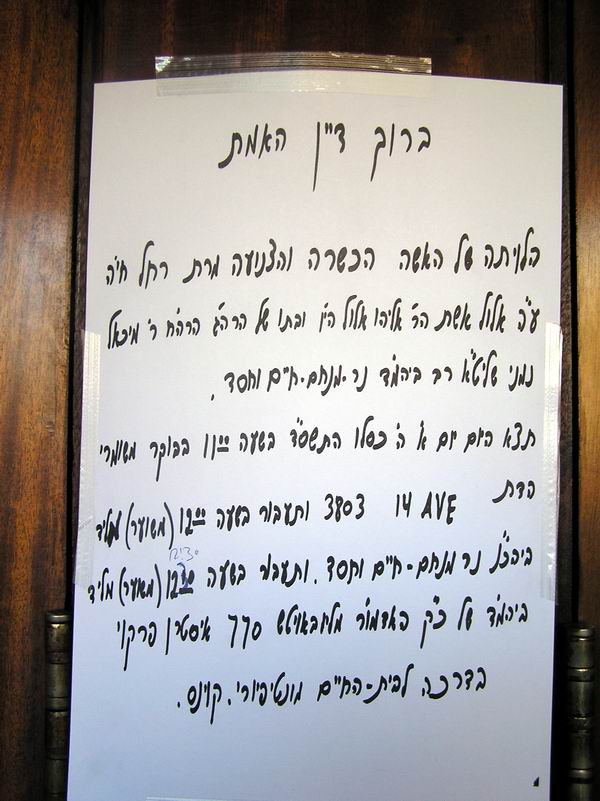 ברוך דיין האמת
הלויתה של האשה הכשרה והצניעה מרת רחל חי'ה
ע"ה אלול אשת הר' אליהו אלול הי"ו ובתו של הרה"ג הרה"ח ר' מיכאל
נמני שליט"א רב ביהמ"ד נר-מנחם-חיים וחסד.
תצא היום יום א' ה' כסלו התשס"ד בשעה 11⁰⁰ בבוקר משומרי
הדת 14 AVE 3803 ותעבור בשעה 12⁰⁰ (משוער) מליד
ביהכ"נ נר מנחם-חיים וחסד. ותעבור בשעה 12³⁰ (משוער) מליד
ביהמ"ד של כ"ק האדמו"ר מליובאוויטש 770 איסטרן פרקוי
בדרכה לבית-החיים מונטיפיורי. קוינס.